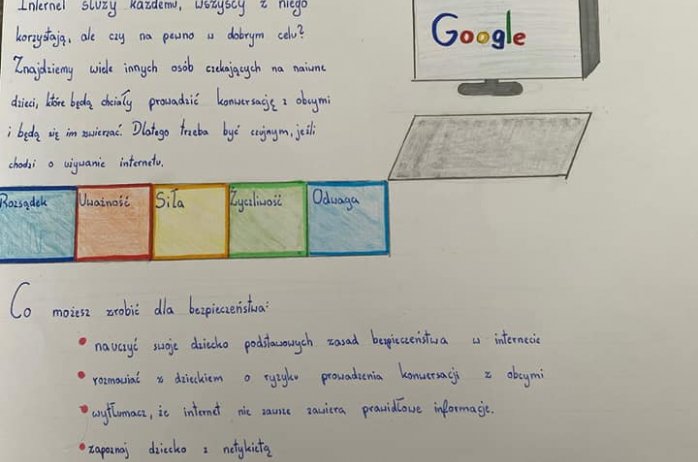 Internet służy każdemu, wszyscy z niego
korzystają, ale czy na pewno w dobrym celu?
Znajdziemy wiele innych osób czekających na naiwne
dzieci, które będą chciały prowadzić konwersację z obcymi
i będą się im zwierzać. Dlatego trzeba być czujnym, jeśli
chodzi o używanie internetu.
Google
Rozsądek Uważność Siła Życzliwość Odwaga
Co możesz zrobić dla bezpieczeństwa:
• nauczyć swoje dziecko podstawowych zasad bezpieczeństwa w internecie
• rozmawiać z dzieckiem o ryzyku prowadzenia konwersacji z obcymi
• wytłumacz, że internet nie zawsze zawiera prawidłowe informacje.
• zapoznaj dziecko z netykietą